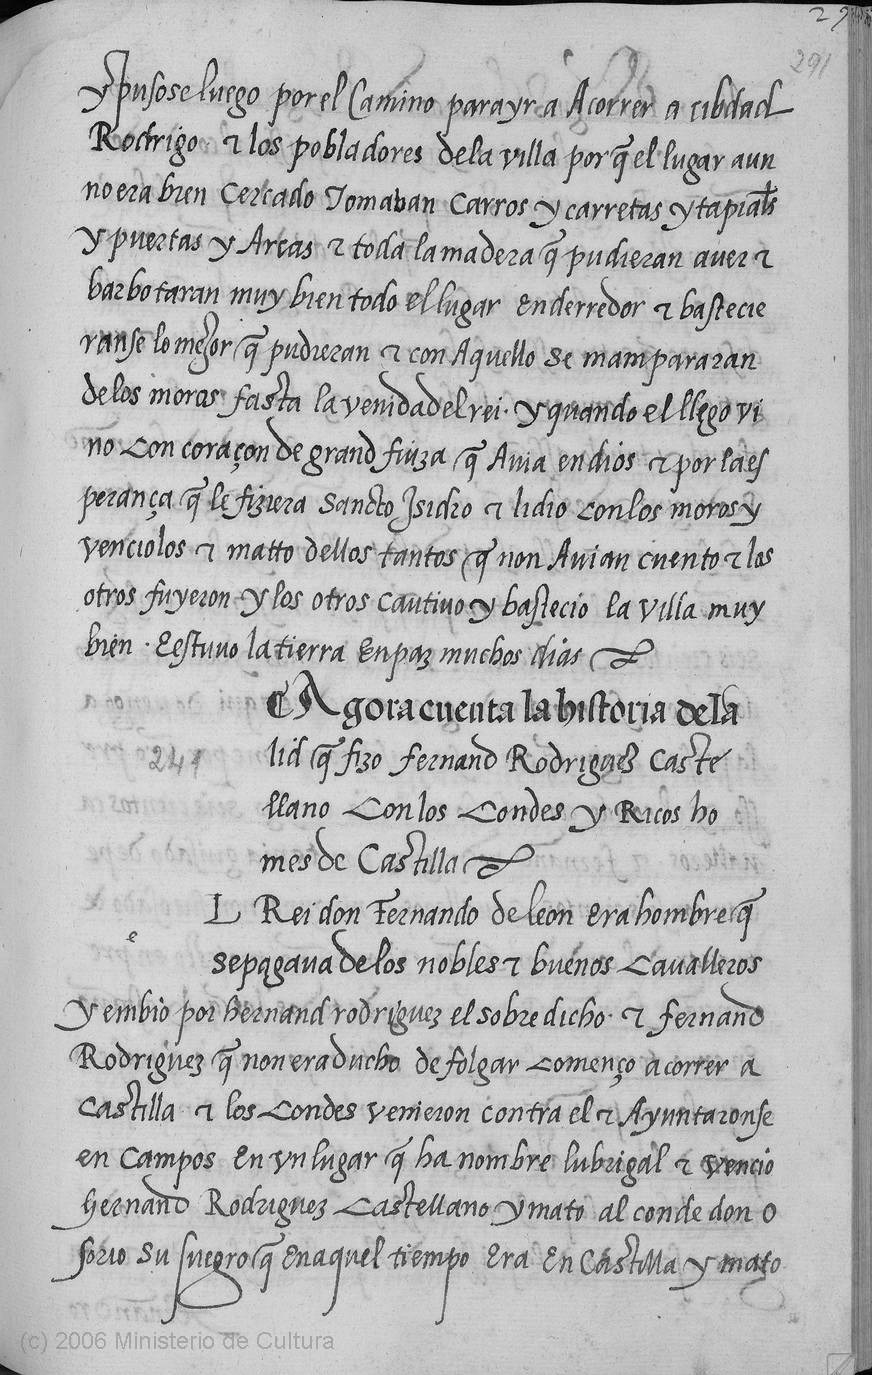 29
291
y pusose luego por el Camino para yr a Acorrer a çibdad
Rodrigo τ los pobladores dela villa por q̃ el lugar aun
no era bien Cercado Tomaban Carros y carretas y tapiales
y puertas y Arcas τ toda la madera q̃ pudieran auer τ
barbotaran muy bien todo el lugar Enderredor τ bastecie
ranse lo mejor q̃ pudieran τ con Aquello se mampararan
delos moros fasta la venida del rei. y quando el llego vi
no Con coraçon de grand fiuza q̃ Auia en dios τ por la es
perança q̃ le fiziera Sancto Jsidro τ lidio Con los moros y
venciolos τ matto dellos tantos q̃ non Auian cuento τ los
otros fuyeron y los otros cautiuo y bastecio la villa muy
bien . E estuuo la tierra En paz muchos dias
¶ Agora cuenta la historia de la
241
lid q̃ fizo fernand Rodriguez Caste
llano Con los Condes y Ricos ho
mes de Castilla
e
L Rei don Fernando de leon Era hombre q̃
se pagaua de los nobles τ buenos Caualleros
y embio por hernand rodriguez el sobre dicho. τ fernand
Rodriguez q̃ non era ducho de folgar Començo a correr a
Castilla τ los Condes venieron contra el τ Ayuntaronse
en Campos En vn lugar q̃ ha nombre lubrigal τ vencio
hernand Rodriguez Castellano y mato al conde don O
sorio su suegro q̃ En aquel tiempo Era En Castilla y mato
(c) 2006 Ministerio de Cultura